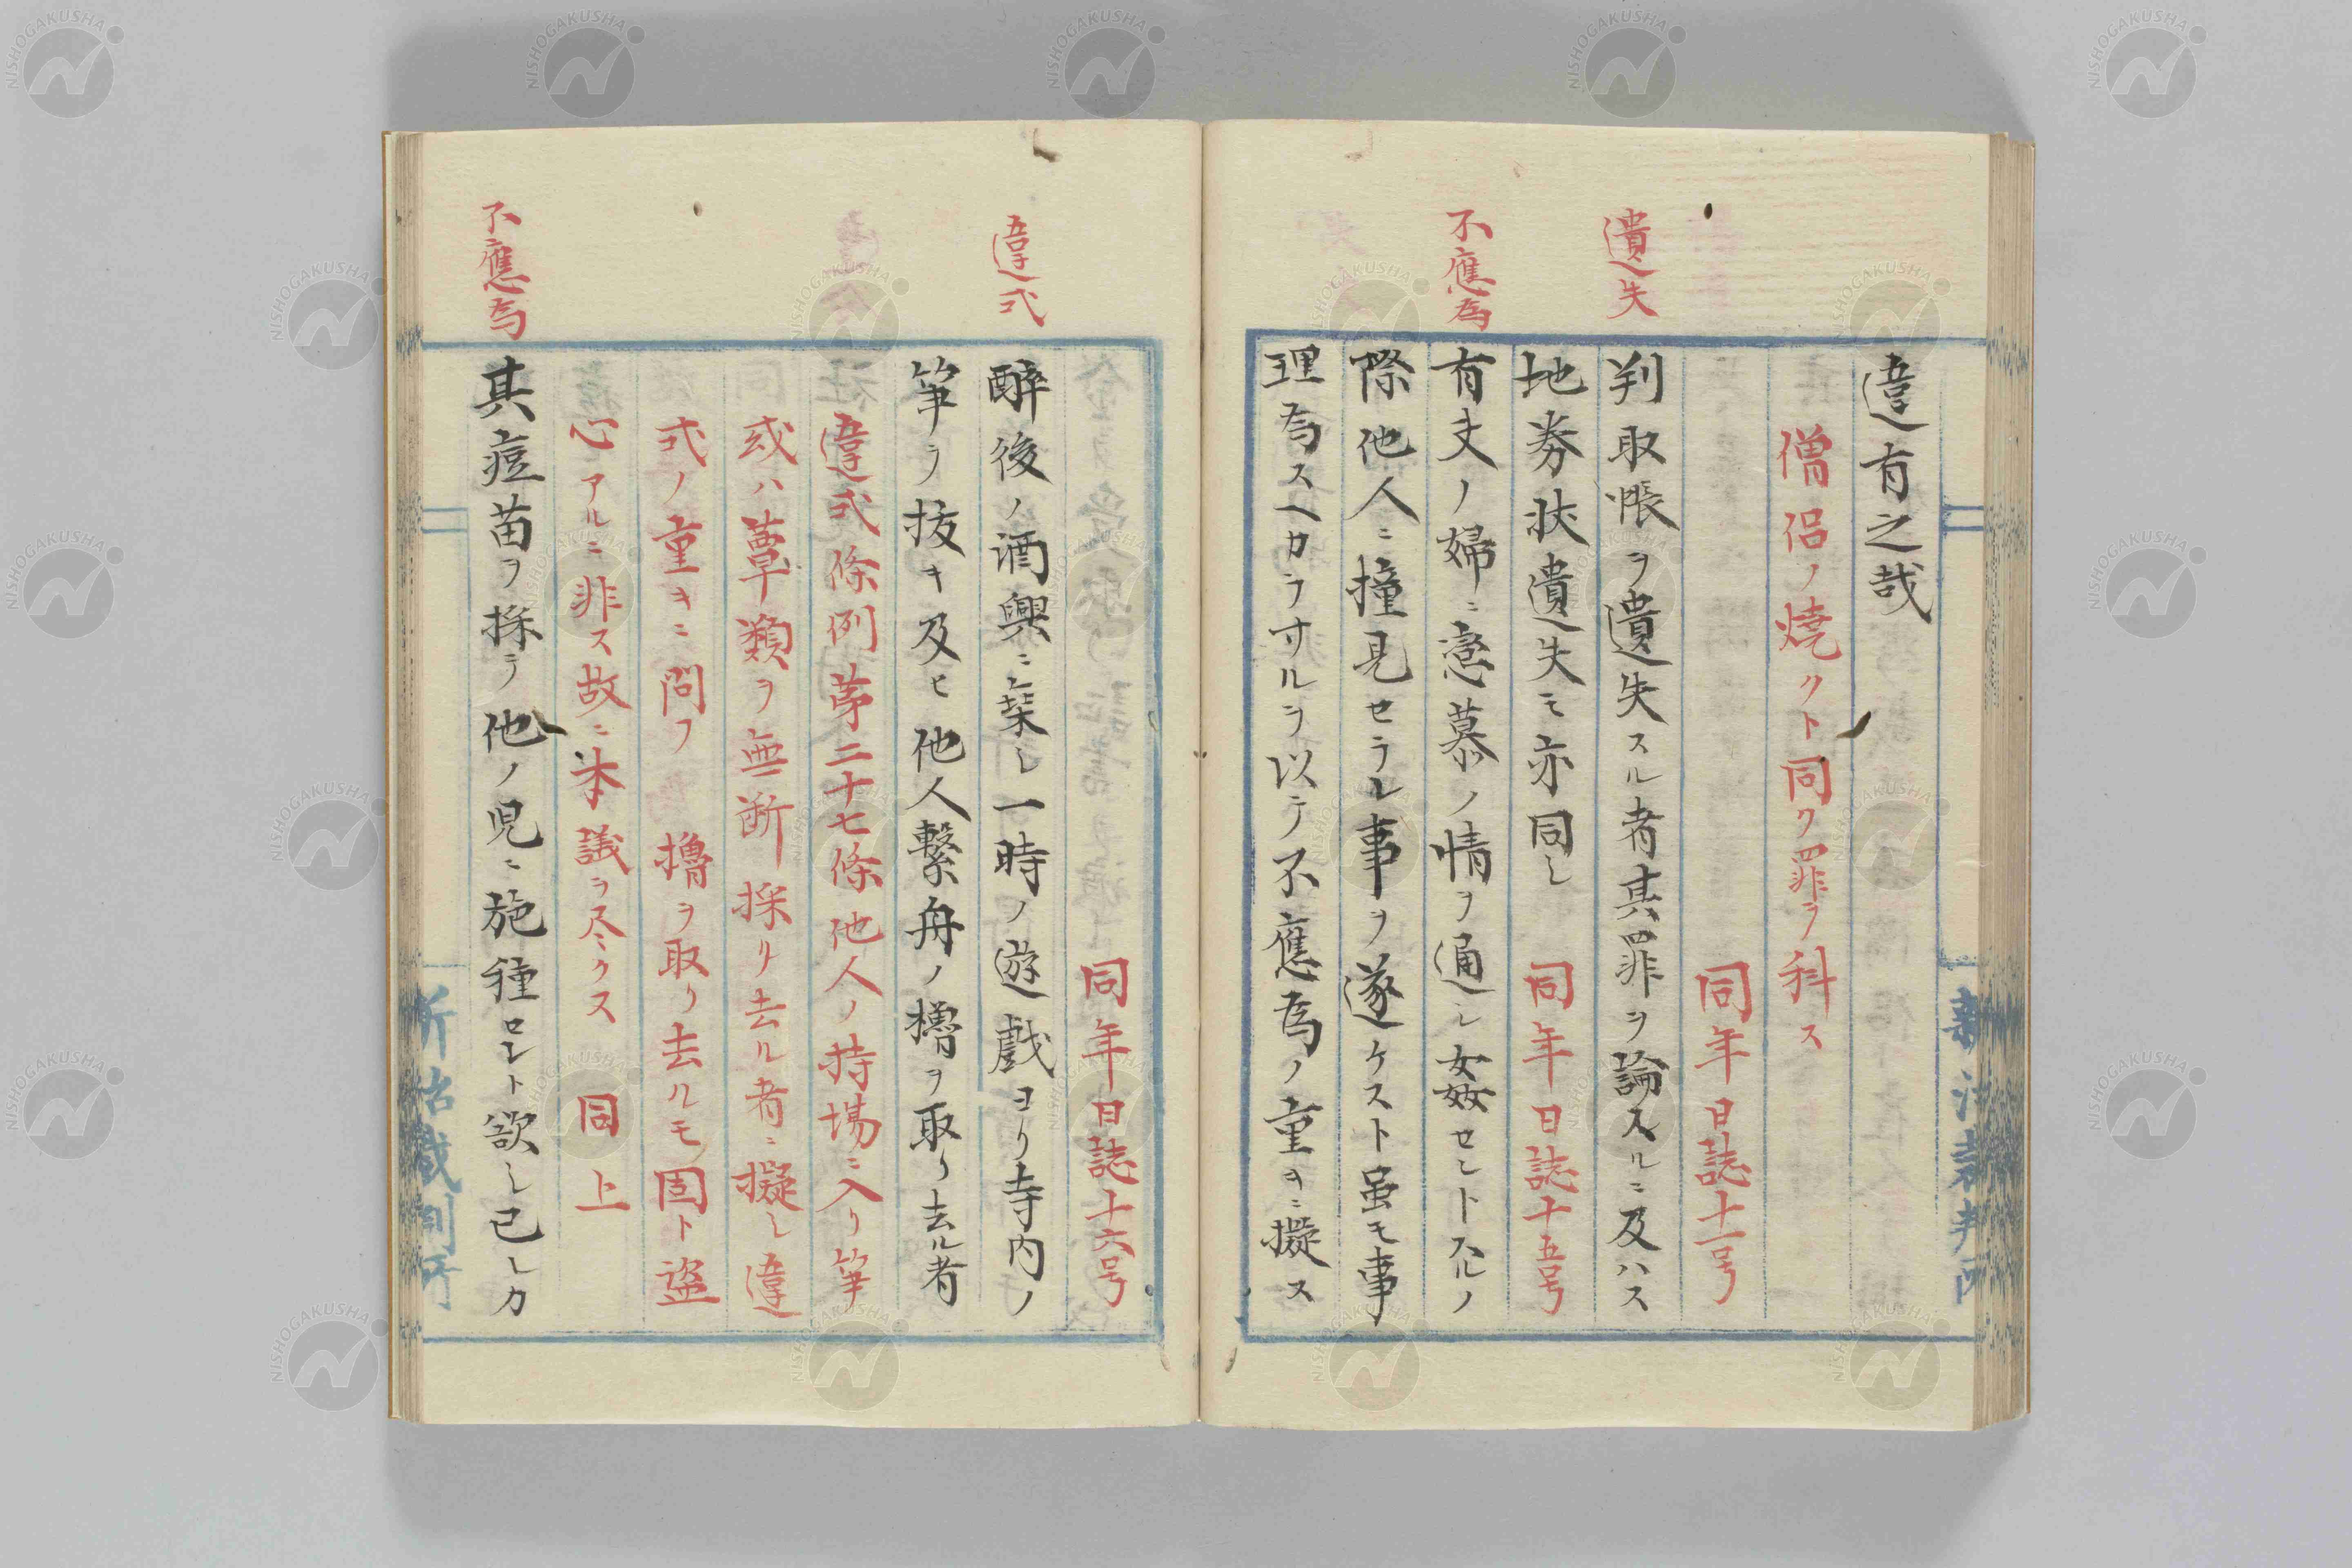 違有之哉
僧侶ノ焼クト同ク罪ヲ科ス
同年日誌十一号
遺失
判取帳ヲ遺失スル者其罪ヲ論スルニ及ハス
地券状遺失モ亦同シ 同年日誌十五号
不應為
有夫ノ婦ニ戀慕ノ情ヲ通シ姦セントスルノ
際他人ニ撞見セラレ事ヲ遂ケスト虽モ事
理為スヘカラサルヲ以テ不應為ノ重キニ擬ス
新治裁判所
同年日誌十六号
違式
醉後ノ酒興ニ乗シ一時ノ遊戯ヨリ寺内ノ
筍ヲ抜キ及ヒ他人繋舟ノ櫓ヲ取り去ル者
違式條例第二十七條他人ノ持場ニ入リ筍
或ハ蕈類ヲ無断採リ去ル者ニ擬シ違
式ノ重キニ問フ 櫓ヲ取り去ルモ固ト盗
心アルニ非ス故ニ本議ヲ尽クス 同上
不應為
其痘苗ヲ採テ他ノ児ニ施種セント欲シ己レカ
新治裁判所
NISHOGAKUSHA